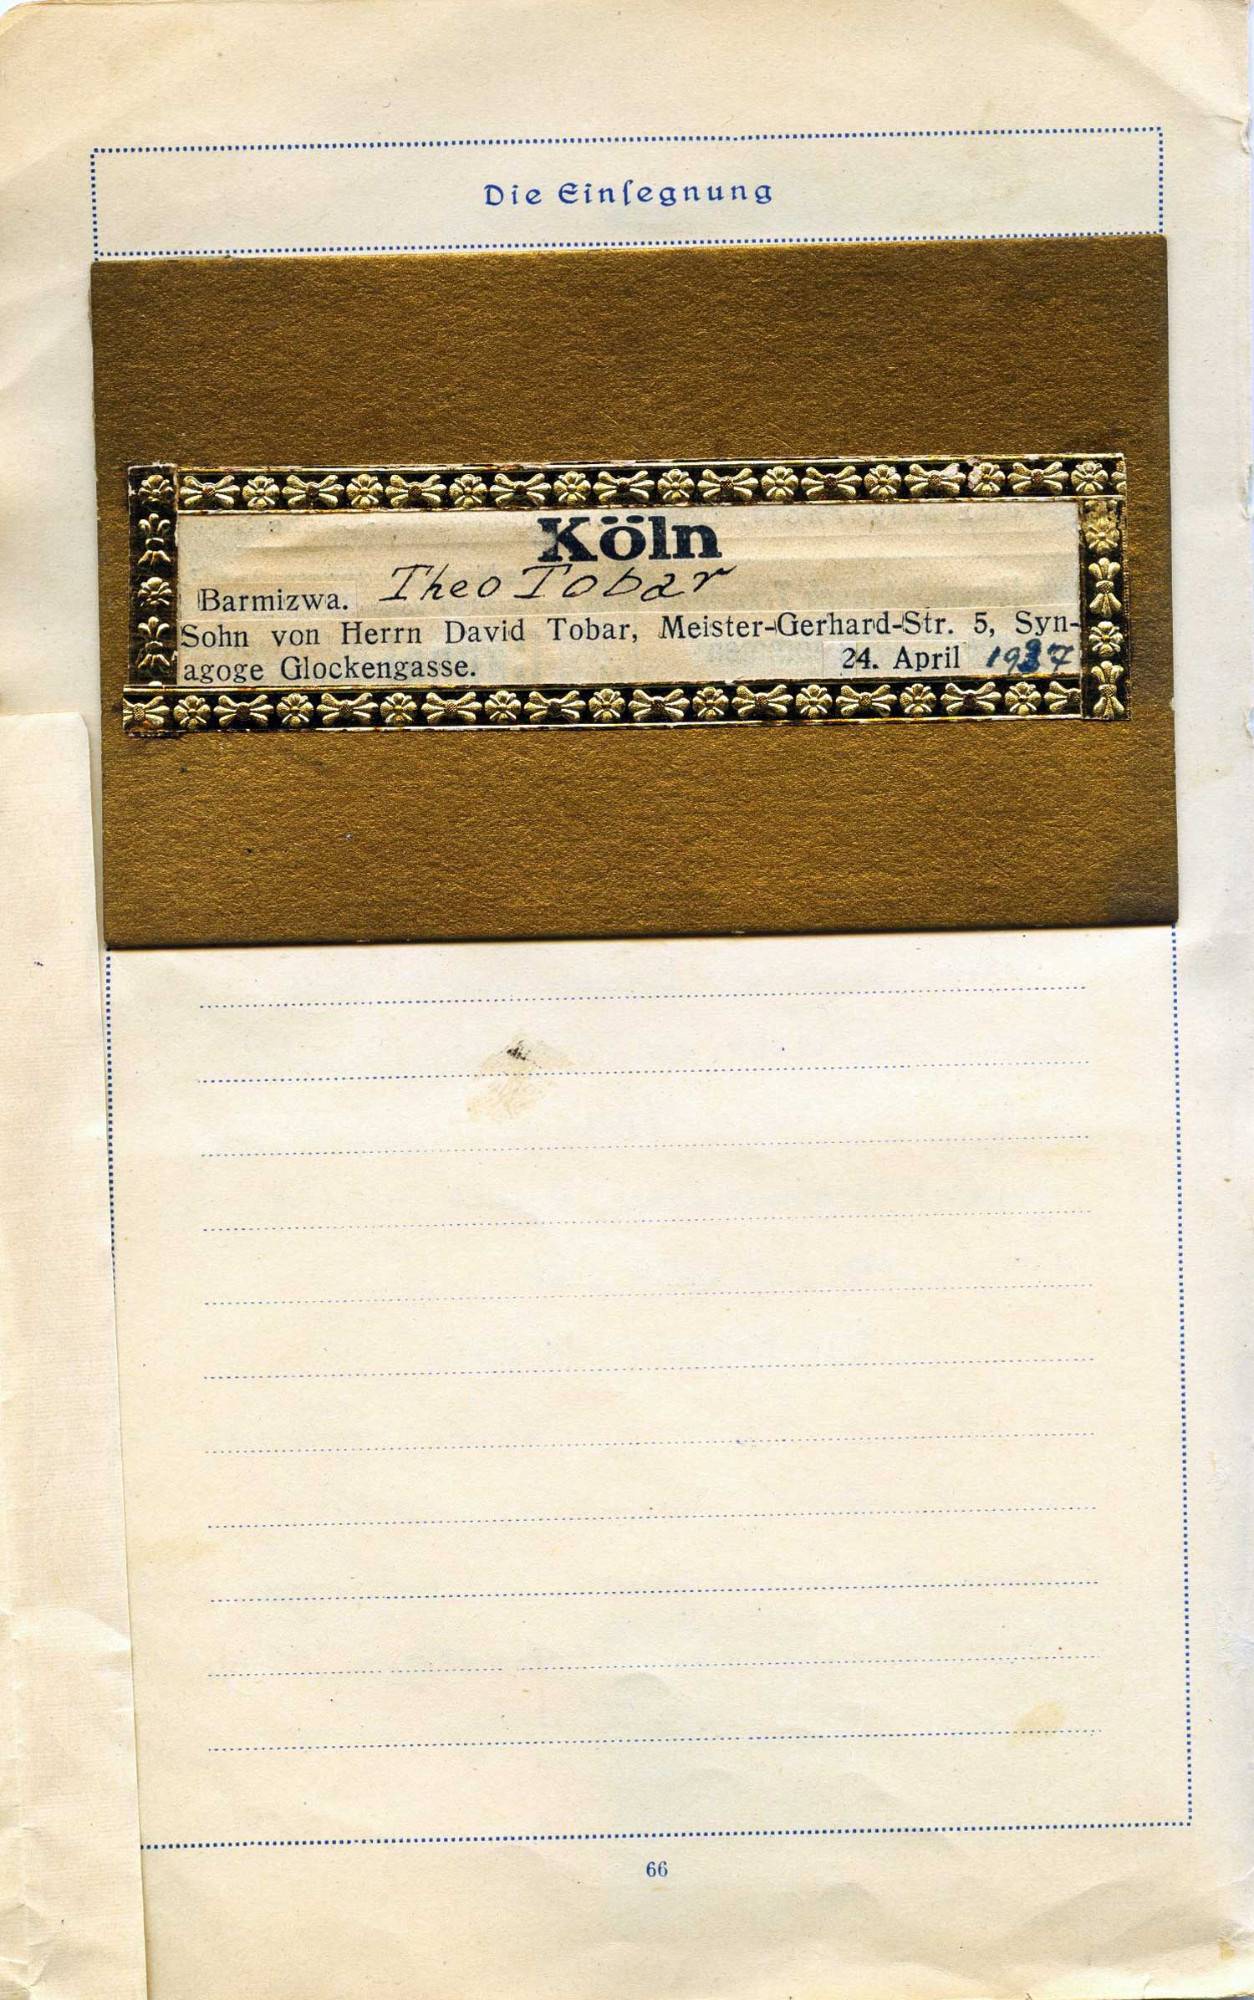 Die Einſegnung
Köln
Barmizwa. Theo Tobar
Sohn von Herrn David Tobar, Meister-Gerhard-Str. 5, Syn-
agoge Glockengasse. 24. April 1937
66